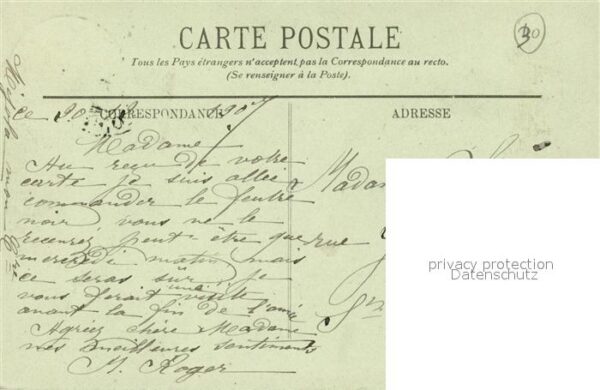 30
CARTE POSTALE
Tous les Pays étrangers n'acceptent pas la Correspondance au recto.
(Se renseigner à la Poste).
CORRESPONDANCE
ADRESSE
ce 30 1907
Madame
Au reçu de votre
carte je suis allée
commander le feutre
noir vous ne le
recevrez peut-être que
mercredi matin mais
ce seras sûr je
vous ferait une visite
avant la fin de l'année
Agréez chère Madame
mes meilleures sentiments
M. Roger
Madame
rue
privacy protection
Datenschutz